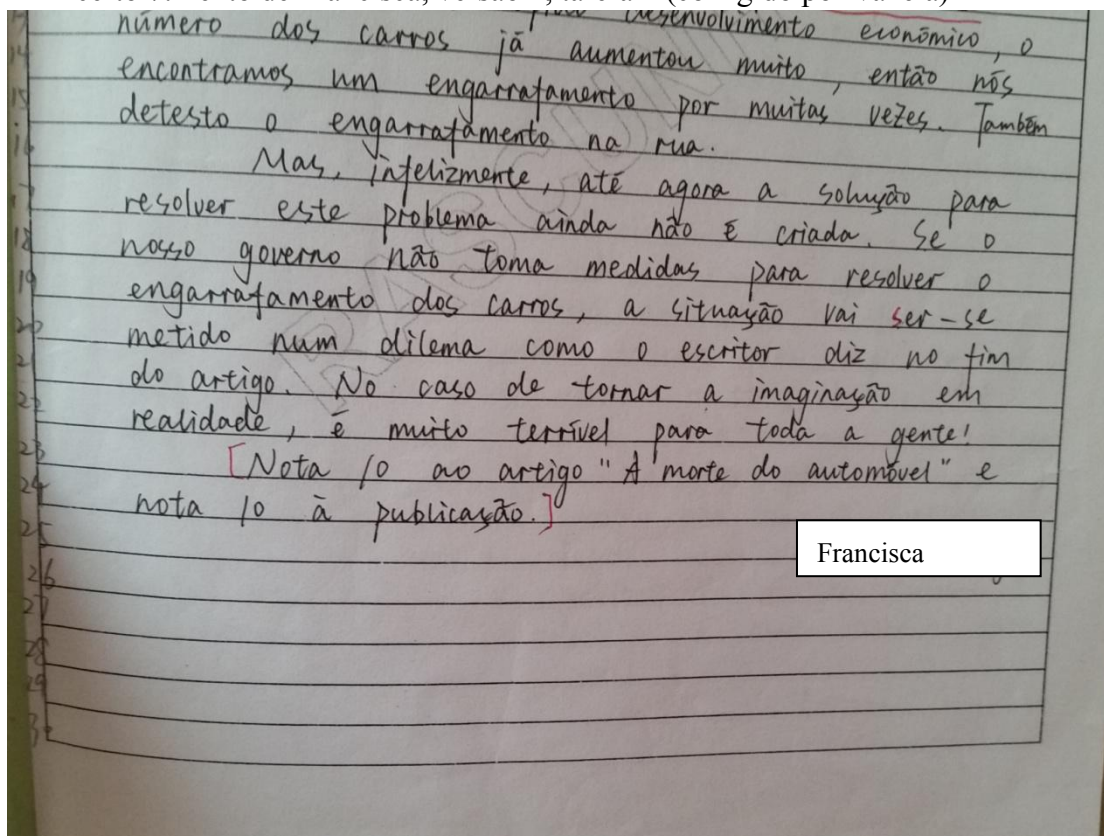 desenvolvimento económico, o
número dos carros já aumentou muito, então nós
encontramos um engarrafamento por muitas vezes. Também
detesto o engarrafamento na rua.
Mas, infelizmente, até agora a solução para
resolver este problema ainda não é criada. Se o
nosso governo não toma medidas para resolver o
engarrafamento dos carros, a situação vai ser-se
metido num dilema como o escritor diz no fim
do artigo. No caso de tornar a imaginação em
realidade, é muito terrível para toda a gente!
[Nota 10 ao artigo "A morte do automóvel" e
nota 10 à publicação.]
Francisca
RASCUN
14
15
16
17
18
19
20
21
22
23
24
25
26
27
28
29